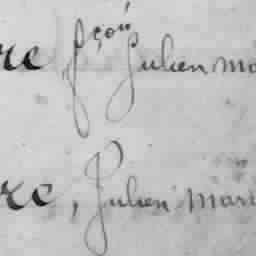 re, fçois Julien ma
re, Julien mari